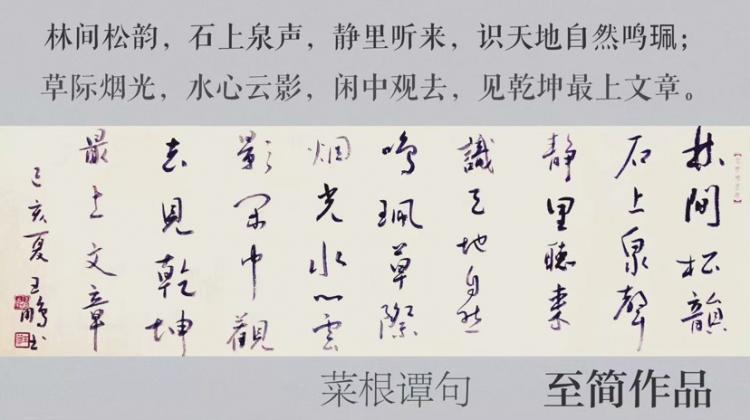 林间松韵，石上泉声，静里听来，识天地自然鸣珮；
草际烟光，水心云影，闲中观去，见乾坤最上文章。
林間松韻
石上泉聲
靜里聽來
識天地自然
鳴珮草際
烟光水心雲
影閑中觀
去見乾坤
最上文章
己亥夏王鵬书
菜根谭句
至简作品